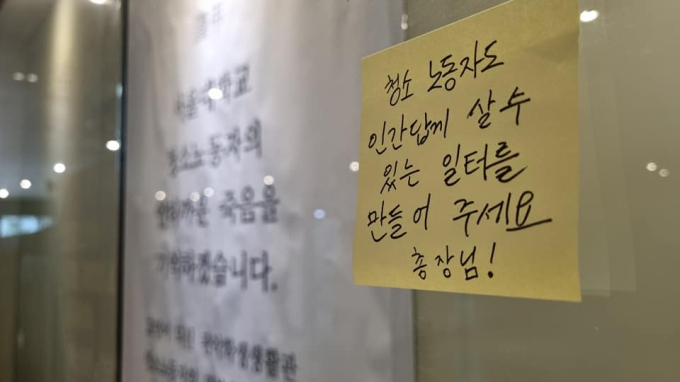 서울대학교
청소노동자의
안타까운 죽음을
기억하겠습니다.
청소 노동자도
인간답께 살 수
있는 일터를
만들어 주세요
총장님!